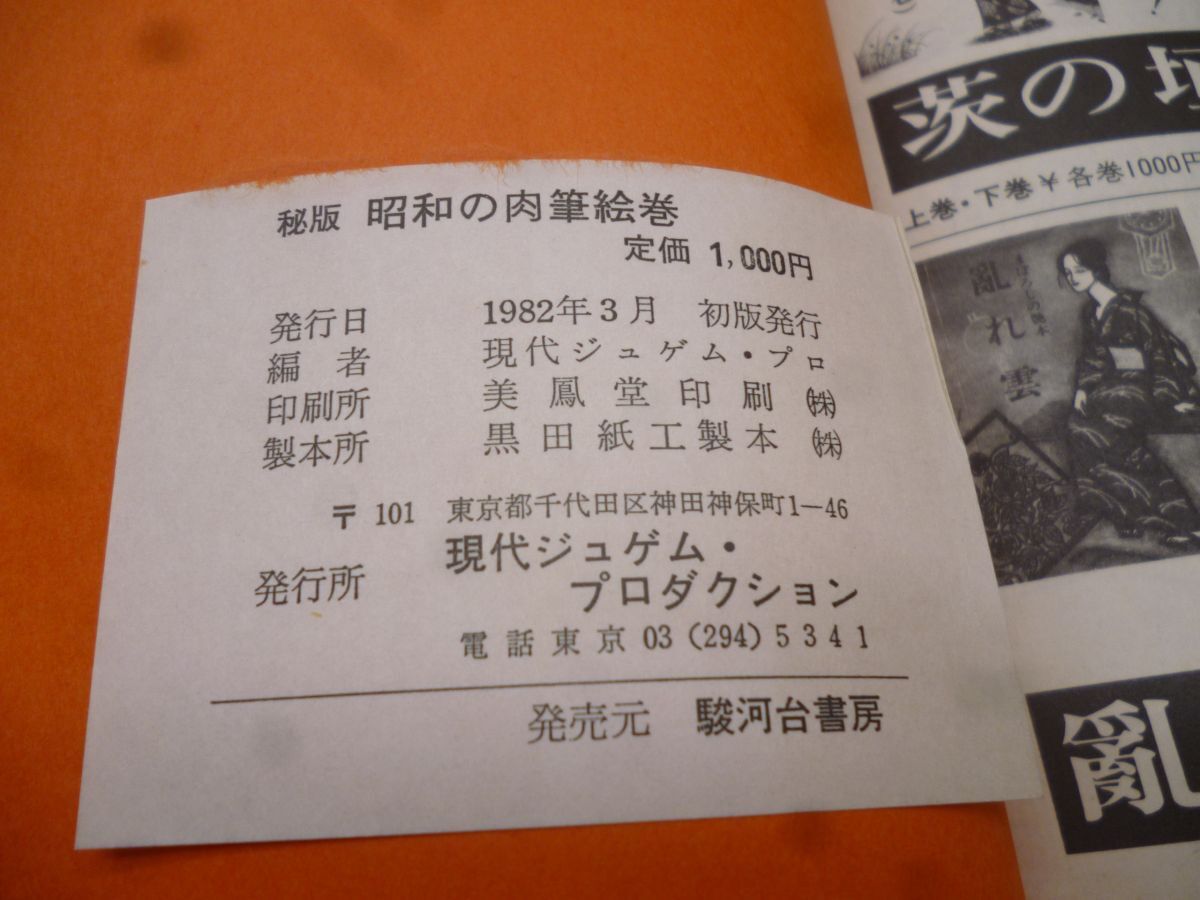 秘版 昭和の肉筆絵巻
定価 1,000円
発行日 1982年3月 初版発行
編者 現代ジュゲム・プロ
印刷所 美鳳堂印刷㈱
製本所 黒田紙工製本㈱
〒101 東京都千代田区神田神保町1−46
発行所 現代ジュゲム・
プロダクション
電話東京 03 (294) 5341
発売元 駿河台書房
茨の
上巻・下巻 ¥ 各巻1000円
亂れ雲
亂